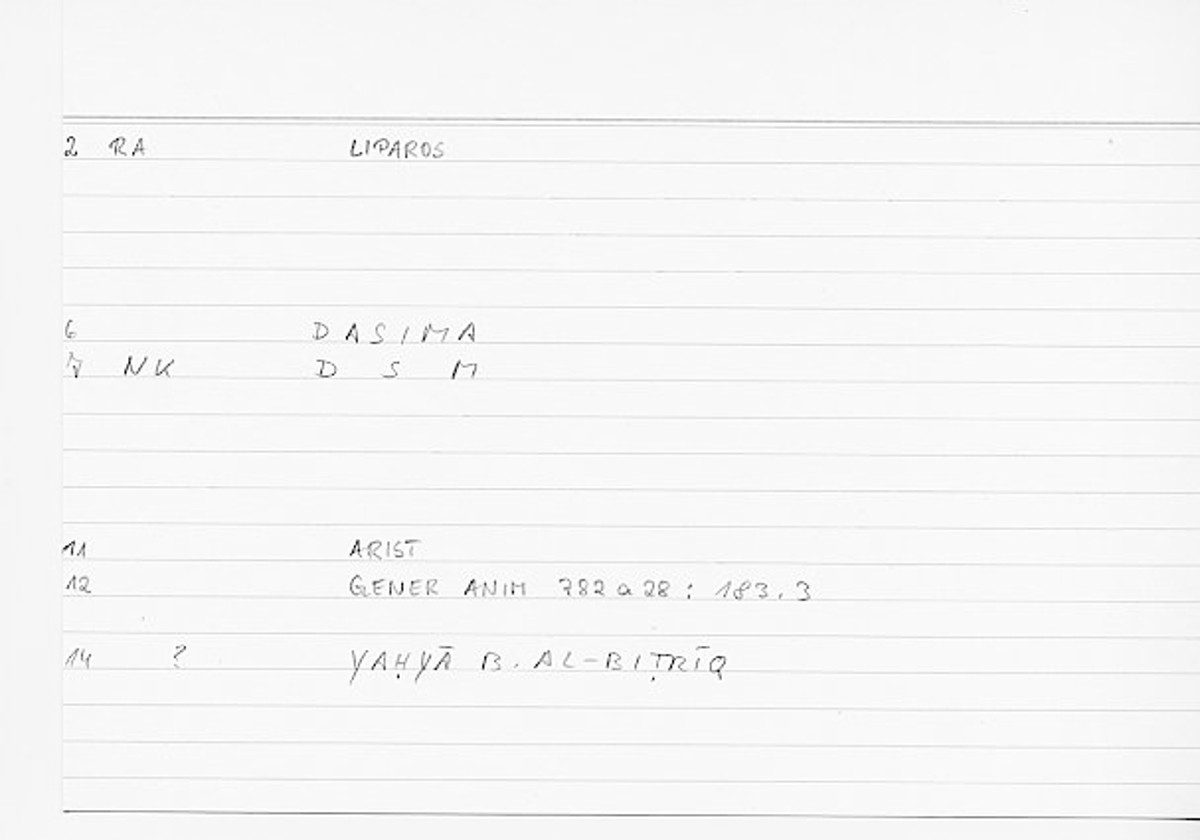 2 RA LIPAROS
6 DASIMA
7 NK D S M
11 ARIST
12 GENER ANIM 782 a 28 : 183.3
14 ? YAḤYĀ B. AL-BIṬRĪQ